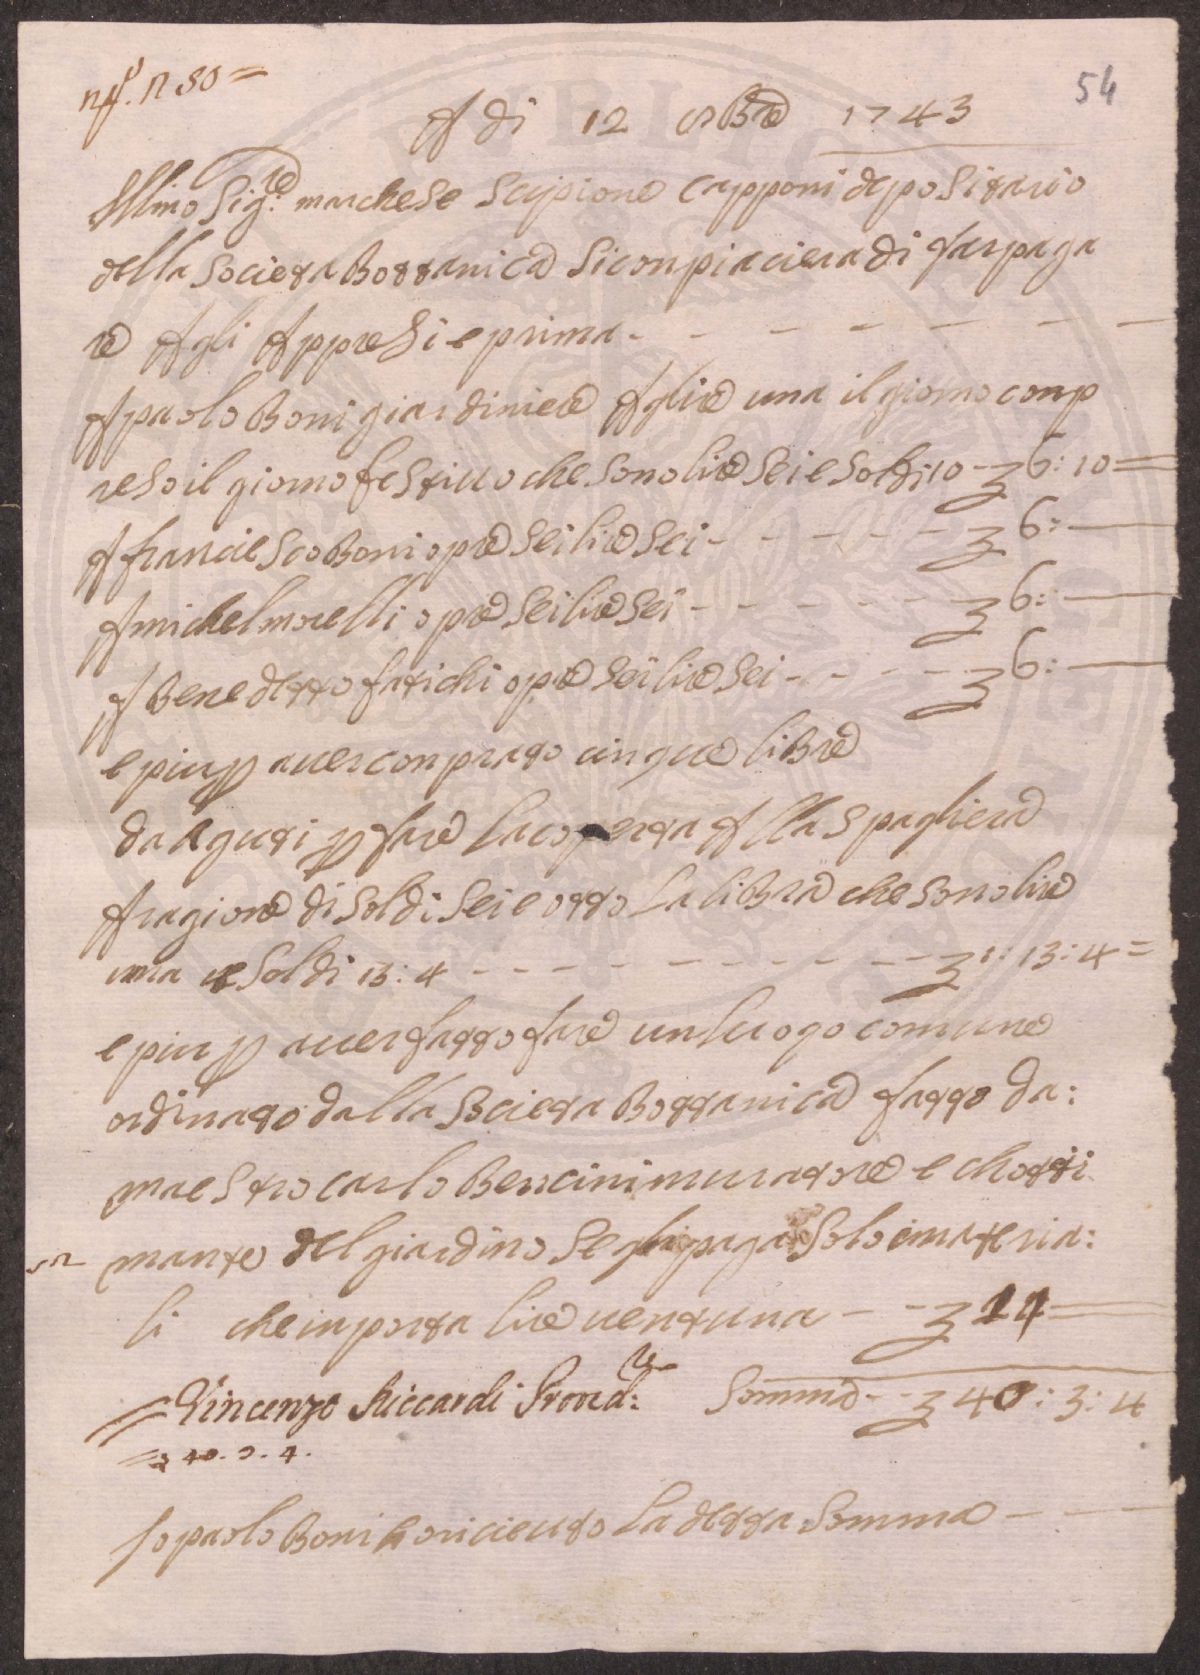 54
A di 12 8Bre 1743
Illmo Sigre marchese Scipione Capponi depositario
della Societa Bottanica Si conpiaciera di far paga
re Agli Appresi e prima - - - - - - -
A paolo Boni giardiniere A lire una il giorno conp
reso il giorno festiuo che sono lire sei e soldi 10 - £ 6: 10
A francie Sco Boni opre sei lire sei - - - - - £ 6: —
A michel morelli opre sei lire sei - - - - - £ 6: —
A Benedetto fatichi opre sei lire sei - - - - - £ 6: —
e piu p auer conprato cinque libre
da Aguti p fare la coperta Alla Spagliera
A ragione di soldi sei e otto la libra che sono lire
una e Soldi 13: 4 - - - - - - - - £ 1: 13: 4
e piu p auer fatto fare un luogo comune
ordinato dalla Societa Bottanica fatto da:
maestro carlo Bencini muratore e chotti
mante del giardino se gli paga solo i materia:
li che inporta lire uentuna - - £ 14
Vincenzo Riccardi Provedre: Somma - - £ 40: 3: 4
£ 40. 3. 4.
Io paolo Boni ho riceuto la detta Somma - - -